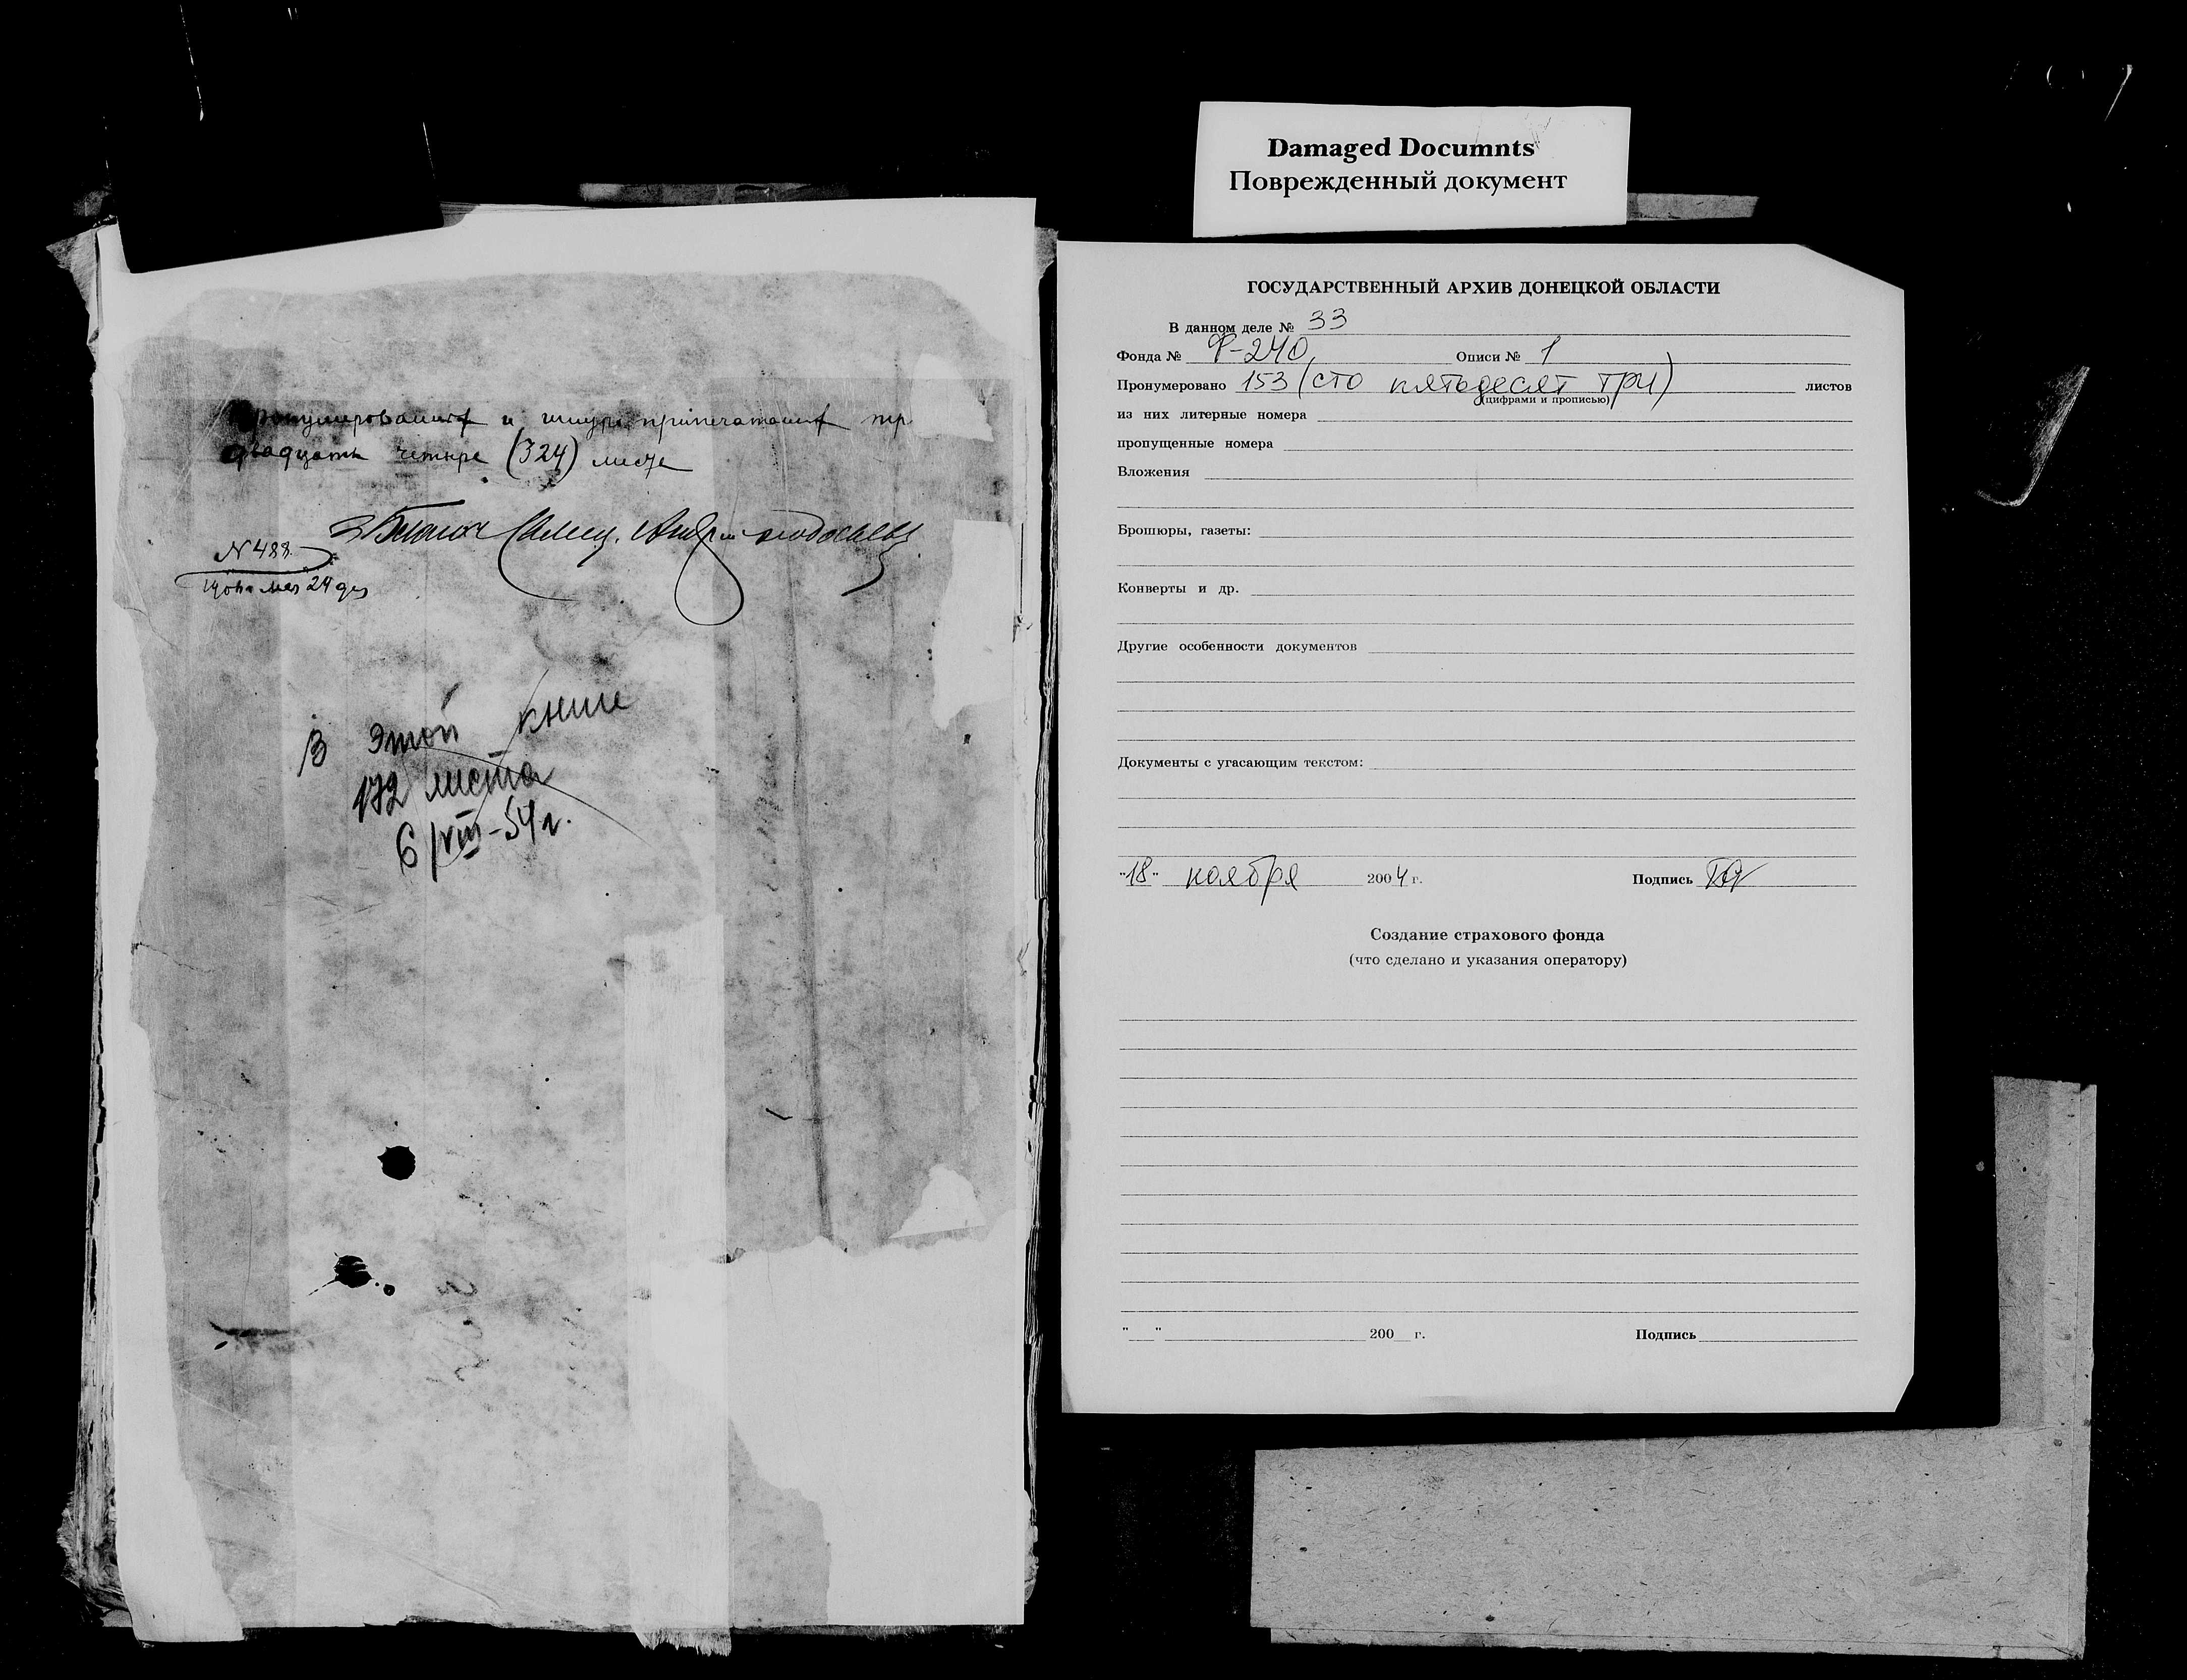 Damaged Documnts
Поврежденный документ
и
четыре (324)
N 488
24
В этой книге
192 листа
6/VIII-54 г.
ГОСУДАРСТВЕННЫЙ АРХИВ ДОНЕЦКОЙ ОБЛАСТИ
В данном деле № 33
Фонда № Ф-240, Описи № 1
Пронумеровано 153 (сто пятьдесят три) листов
(цифрами и прописью)
из них литерные номера
пропущенные номера
Вложения
Брошюры, газеты:
Конверты и др.
Другие особенности документов
Документы с угасающим текстом:
"18" ноября 2004 г. Подпись
Создание страхового фонда
(что сделано и указания оператору)
"__" 200__ г. Подпись